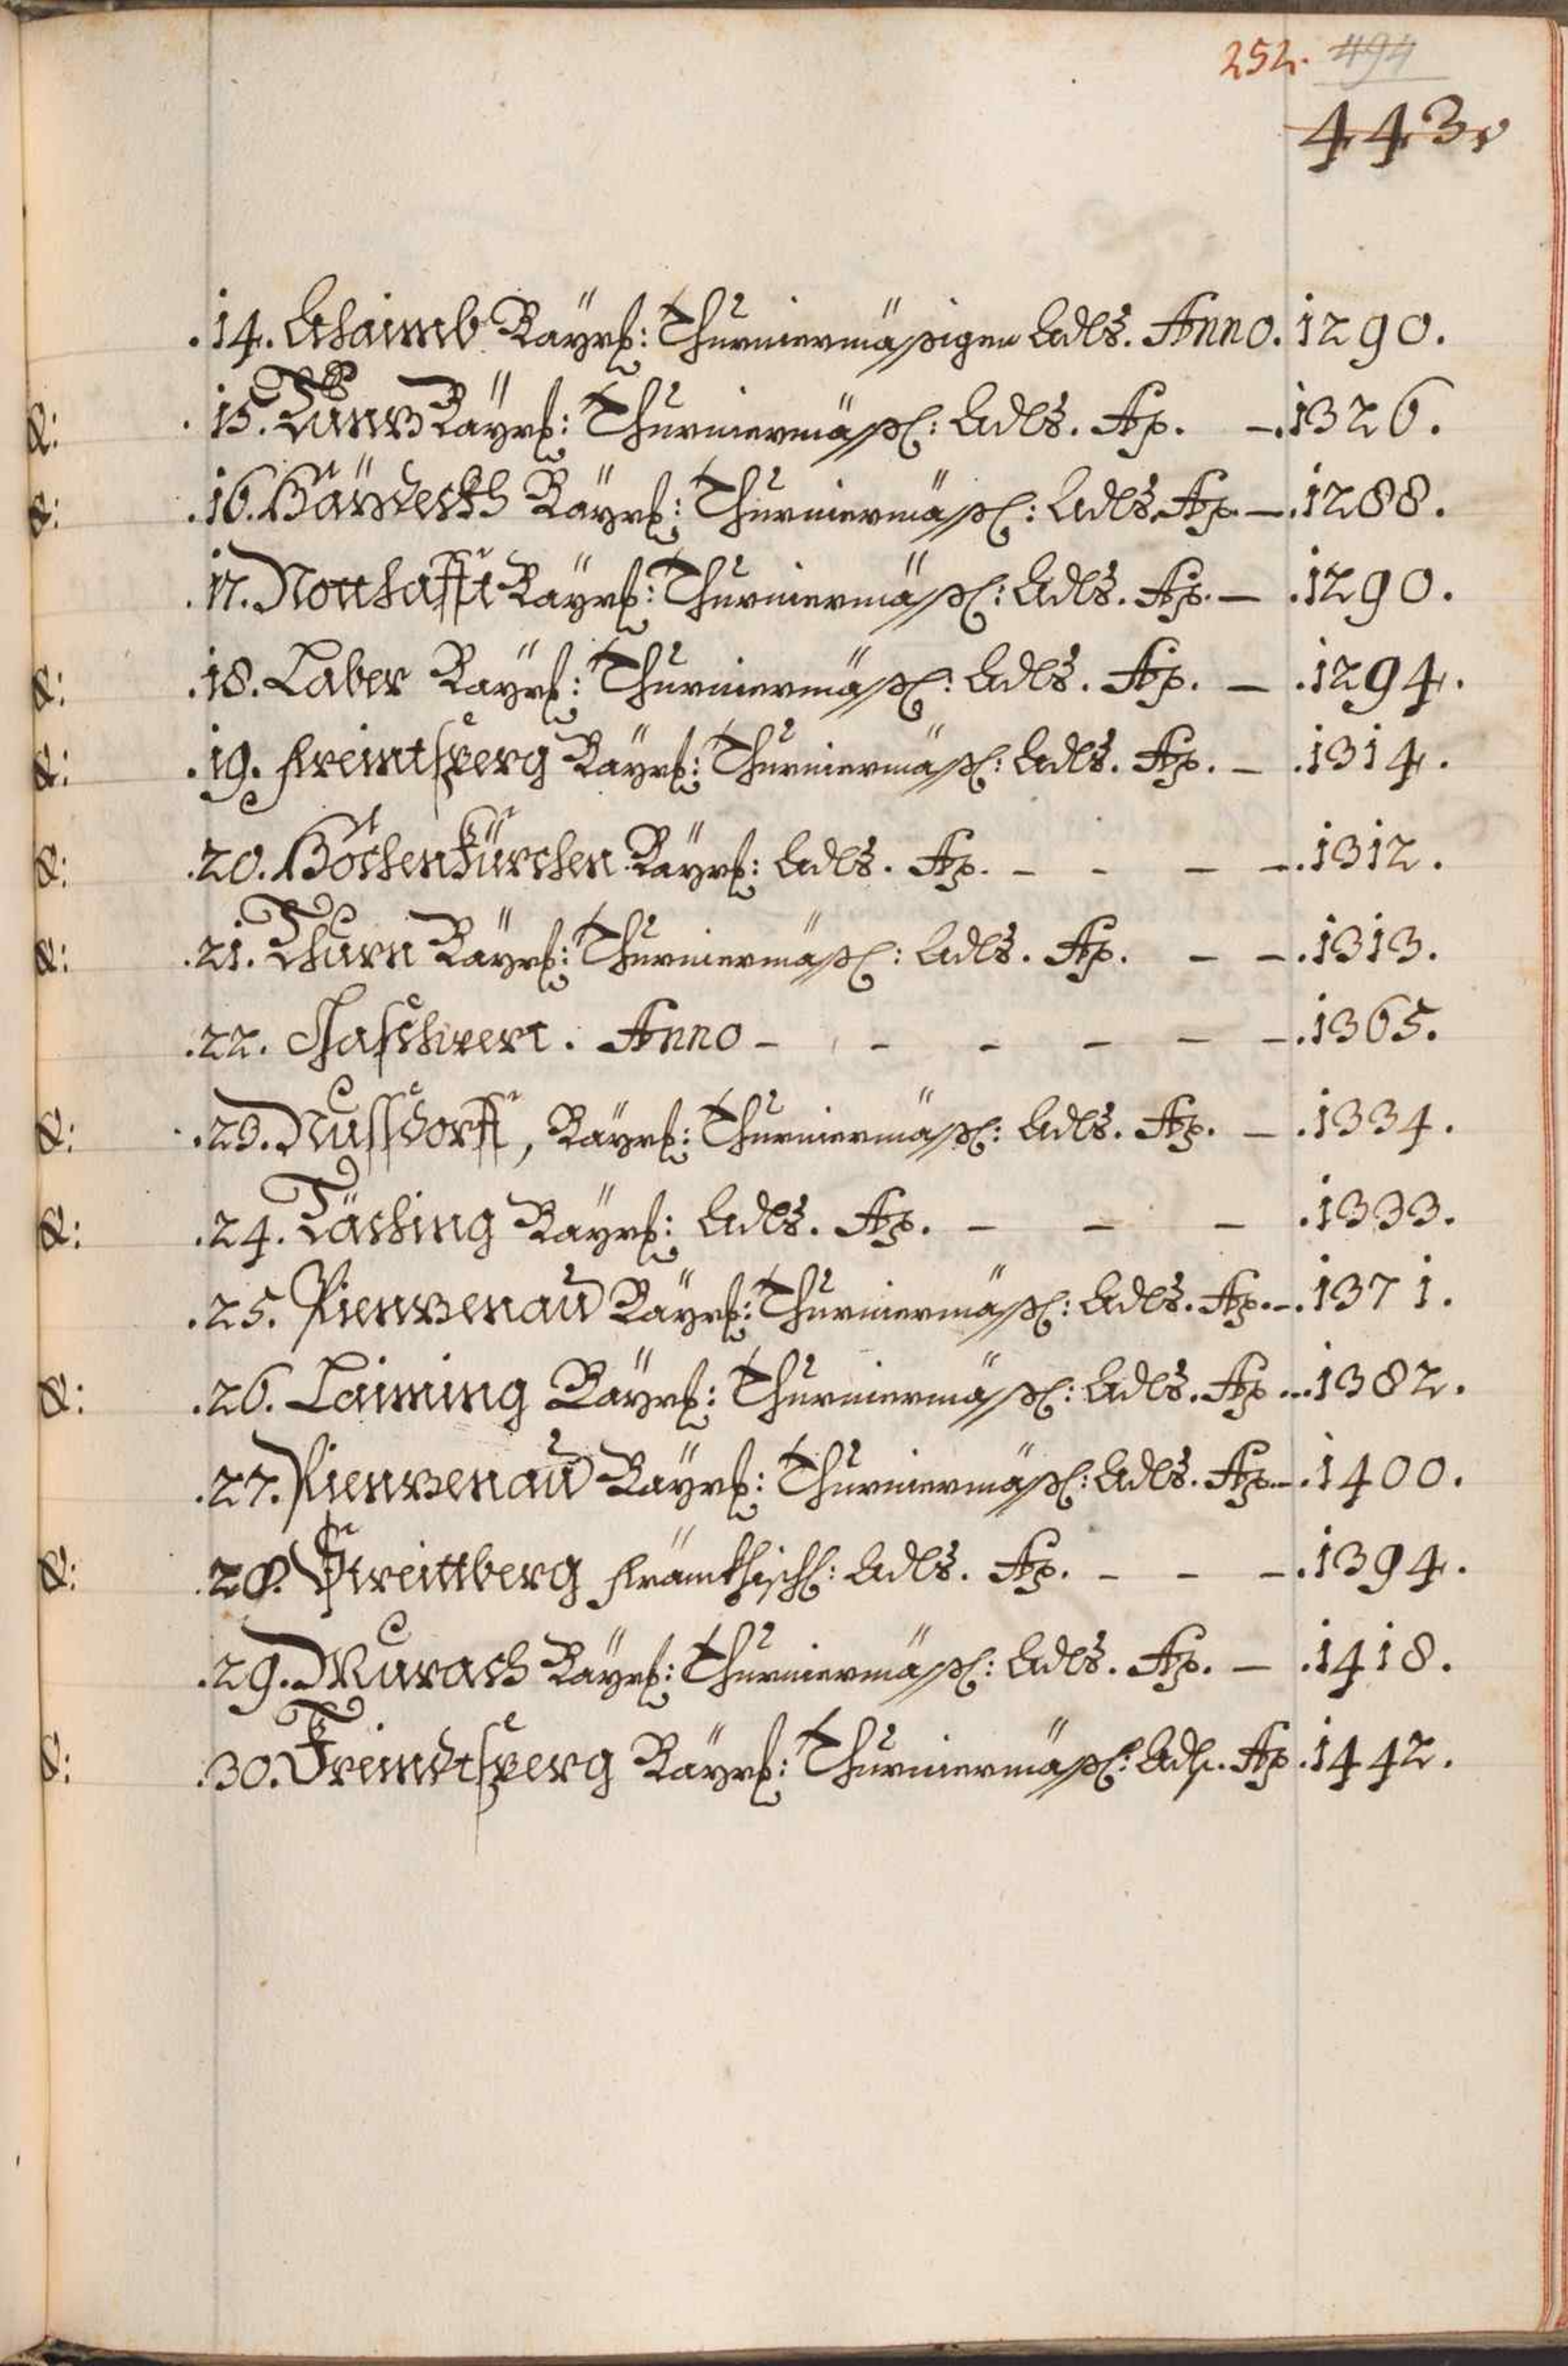 252. 494
443v
.14. Ahaimb Bayrß: Thurniermäßigen Adls. Anno. 1290.
&: .15. Bayrß: Thurniermäßl: Adls. Ao. — .1326.
&: .16. Bayrß: Thurniermäßl: Adls. Ao. — .1288.
.17. Notthafft Bayrß: Thurniermäßl: Adls. Ao. — .1290.
&: .18. Laber Bayrß: Thurniermäßl: Adls. Ao. — .1294.
&: .19. Freimtsperg Bayrß: Thurniermäßl: Adls. Ao. — .1314.
&: .20. Höchenkürchen Bayrß: Adls. Ao. — — — — .1312.
&: .21. Thurn Bayrß: Thurniermäßl: Adls. Ao. — — .1313.
.22. Anno — — — — — — .1365.
&: .23. Nussdorff, Bayrß: Thurniermäßl: Adls. Ao. — .1334.
&: .24. Täching Bayrß: Adls. Ao. — — — .1333.
.25. Pienzenau Bayrß: Thurniermäßl: Adls. Ao. — .1371.
&: .26. Laiming Bayrß: Thurniermäßl: Adls. Ao ... 1382.
.27. Pienzenau Bayrß: Thurniermäßl: Adls. Ao. — .1400.
&: .28. Streittberg Fränkhischl: Adls. Ao. — — — .1394.
.29. Murach Bayrß: Thurniermäßl: Adls. Ao. — .1418.
&: .30. Freindtsperg Bayrß: Thurniermäßl: Adls. Ao .1442.